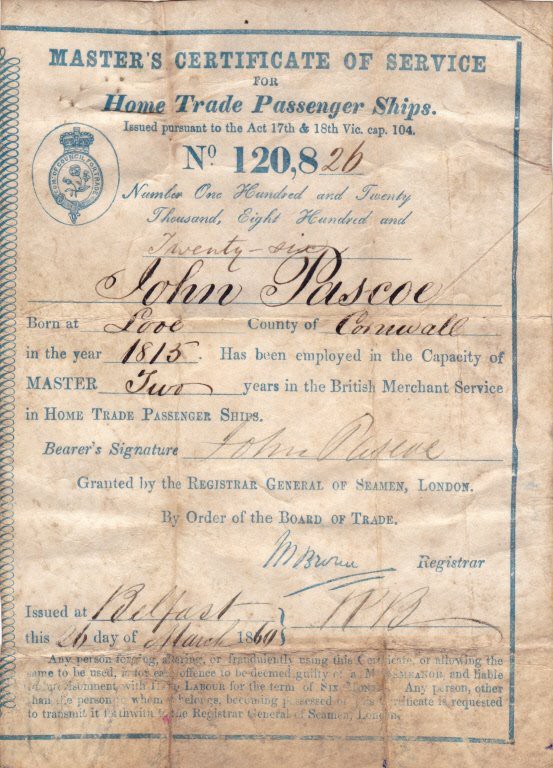 MASTER'S CERTIFICATE OF SERVICE
FOR
Home Trade Passenger Ships.
Issued pursuant to the Act 17th & 18th Vic. cap. 104.
No 120,826
Number One Hundred and Twenty
Thousand, Eight Hundred and
Twenty-six
John Pascoe
Born at Looe County of Cornwall
in the year 1815. Has been employed in the Capacity of
MASTER Two years in the British Merchant Service
in HOME TRADE PASSENGER SHIPS.
Bearer's Signature John Pascoe
Granted by the REGISTRAR GENERAL OF SEAMEN, LONDON.
By Order of the BOARD OF TRADE.
Registrar
Issued at Belfast
this 26 day of March 1860
Any person forging, altering, or fraudulently using this Certificate, or allowing the
same to be used, is for each offence to be deemed guilty of a MISDEMEANOR, and liable
to Imprisonment with HARD LABOUR for the term of SIX MONTHS. Any person, other
than the person to whom it belongs, becoming possessed of this Certificate is requested
to transmit it forthwith to the Registrar General of Seamen, London.